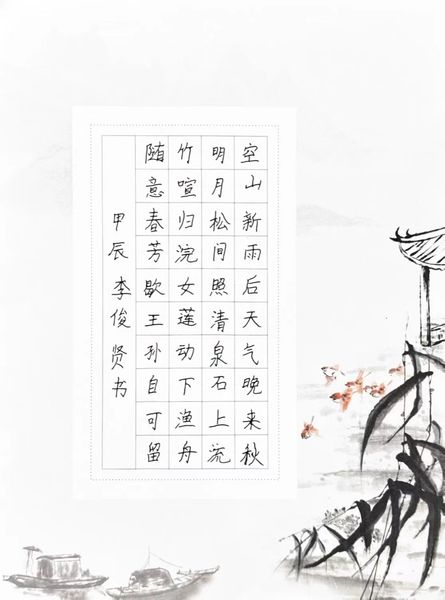 空山新雨后天气晚来秋
明月松间照清泉石上流
竹喧归浣女莲动下渔舟
随意春芳歇王孙自可留
甲辰李俊贤书